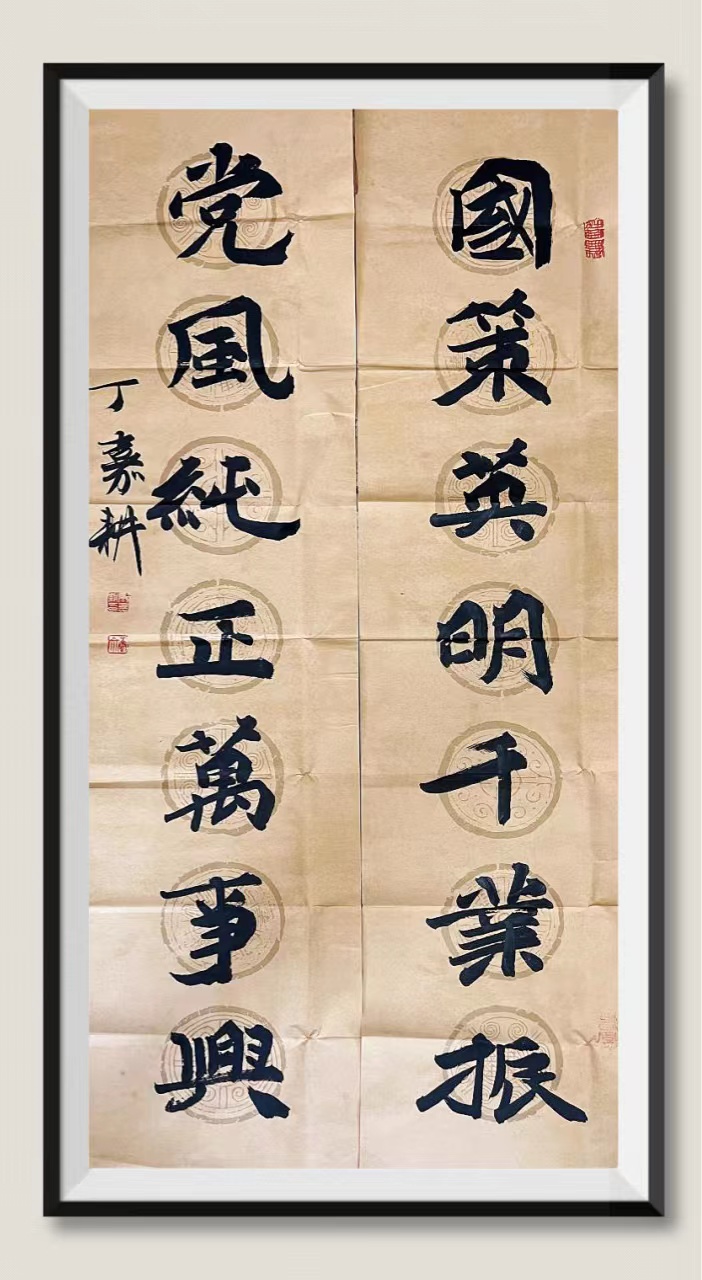 國策英明千業振
党風純正萬事興
丁嘉耕